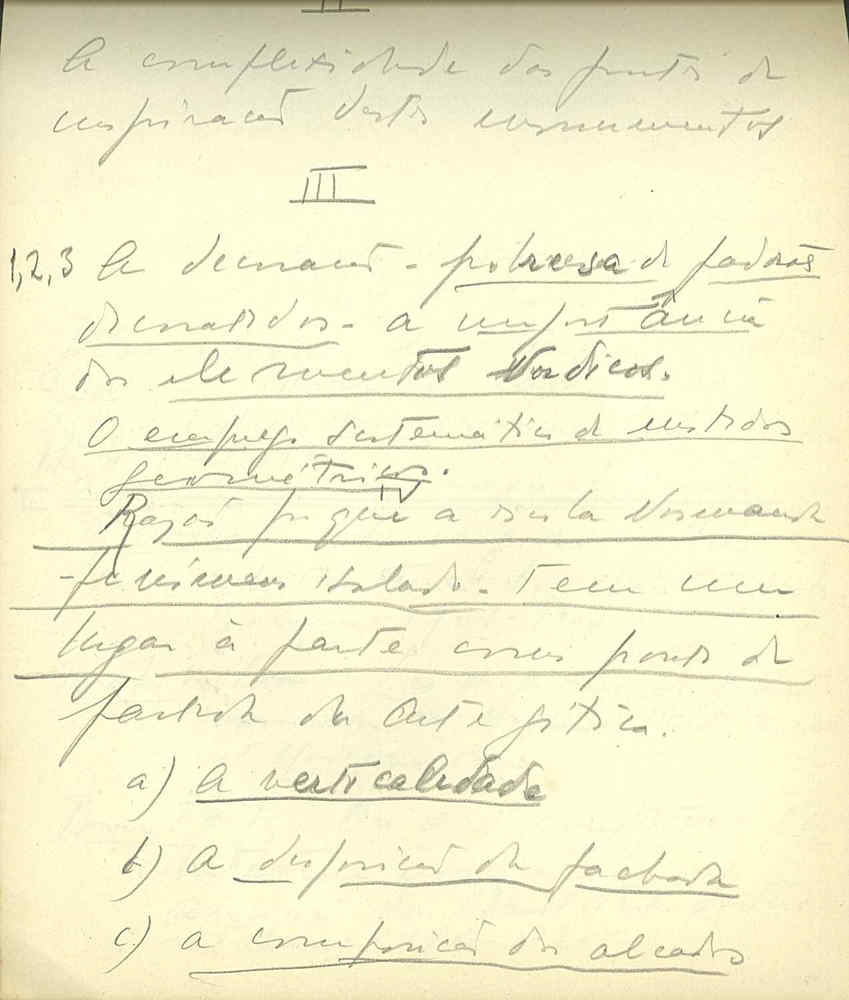 II
A complexidade das fontes de
inspiração destes monumentos
III
1,2,3 A decoração - pobreza de padrões
decorativos - a importância
dos elementos Nordicos.
O emprego sistemático de motivos
geométricos.
IV
Razão porque a escola Normanda
- fenómeno isolado. Tem um
lugar à parte como ponto de
partida da Arte gótica.
a) A verticalidade
b) A disposição da fachada
c) a composição dos alçados